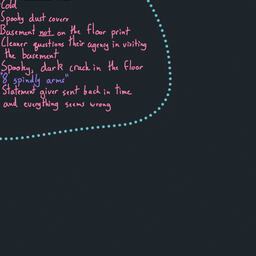 Cold
Spooky dust covers
Basement not on the floor print
Cleaner questions their agency in visiting
the basement
Spooky, dark crack in the floor
"8 spindly arms"
Statement giver sent back in time
and everything seems wrong